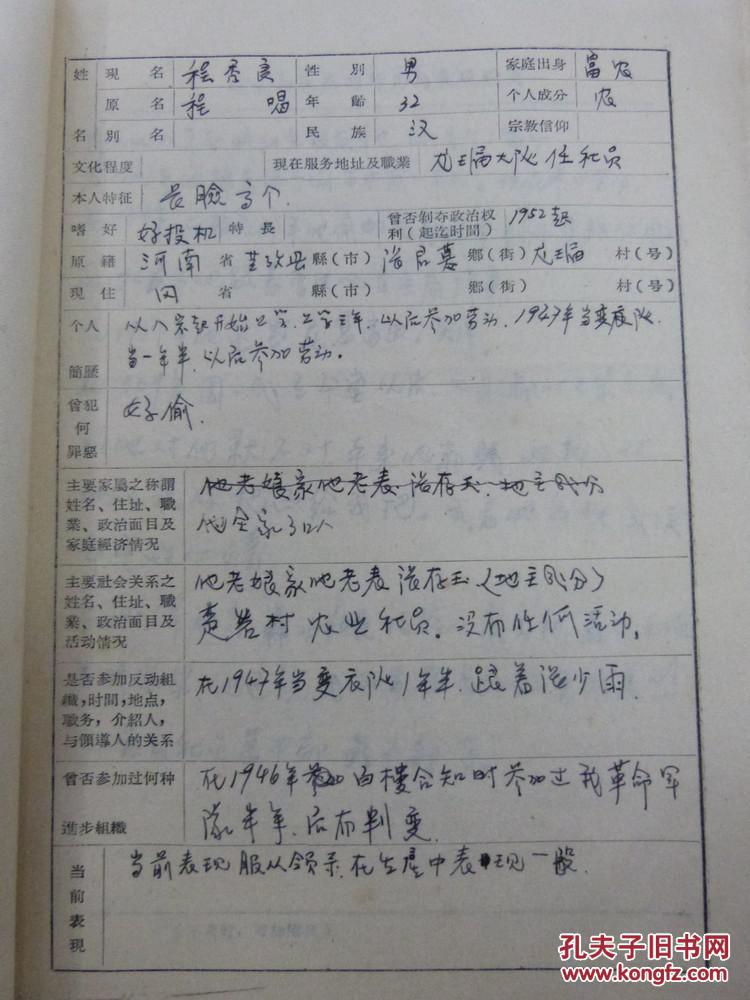 姓 現名 程秀良 性別 男 家庭出身 富农
原名 程唱 年齡 32 个人成分 农
名 別名 民族 汉 宗教信仰
文化程度 現在服务地址及職業 大队任社員
本人特征 長臉高个.
嗜好 好投机 特長 曾否剝夺政治权利(起迄时間) 1952起
原籍 河南 省 縣(市) 鄉(街) 村(号)
現住 同 省 縣(市) 鄉(街) 村(号)
个人 从八岁起开始上学,上学三年,以后参加劳动,1947年当变夜队
簡歷 当一年半,以后参加劳动。
曾犯何罪惡 好偷.
主要家屬之称謂 他老娘家他老表 存玉,地主成分
姓名、住址、職 他全家3口人
業、政治面目及
家庭經济情况
主要社会关系之 他老娘家他老表 存玉(地主成分)
姓名、住址、職 村 农业社員。没有任何活动。
業、政治面目及
活动情况
是否参加反动組 在1947年当变夜队1年半.跟着 少雨.
織,时間,地点,
職务,介紹人,
与領導人的关系
曾否参加过何种 在1946年 白樓合知时参加过我革命军
進步組織 队半年,后有判变.
当前表現 当前表现服从领导.在生產中表现一般.
孔夫子旧书网
www.kongfz.com